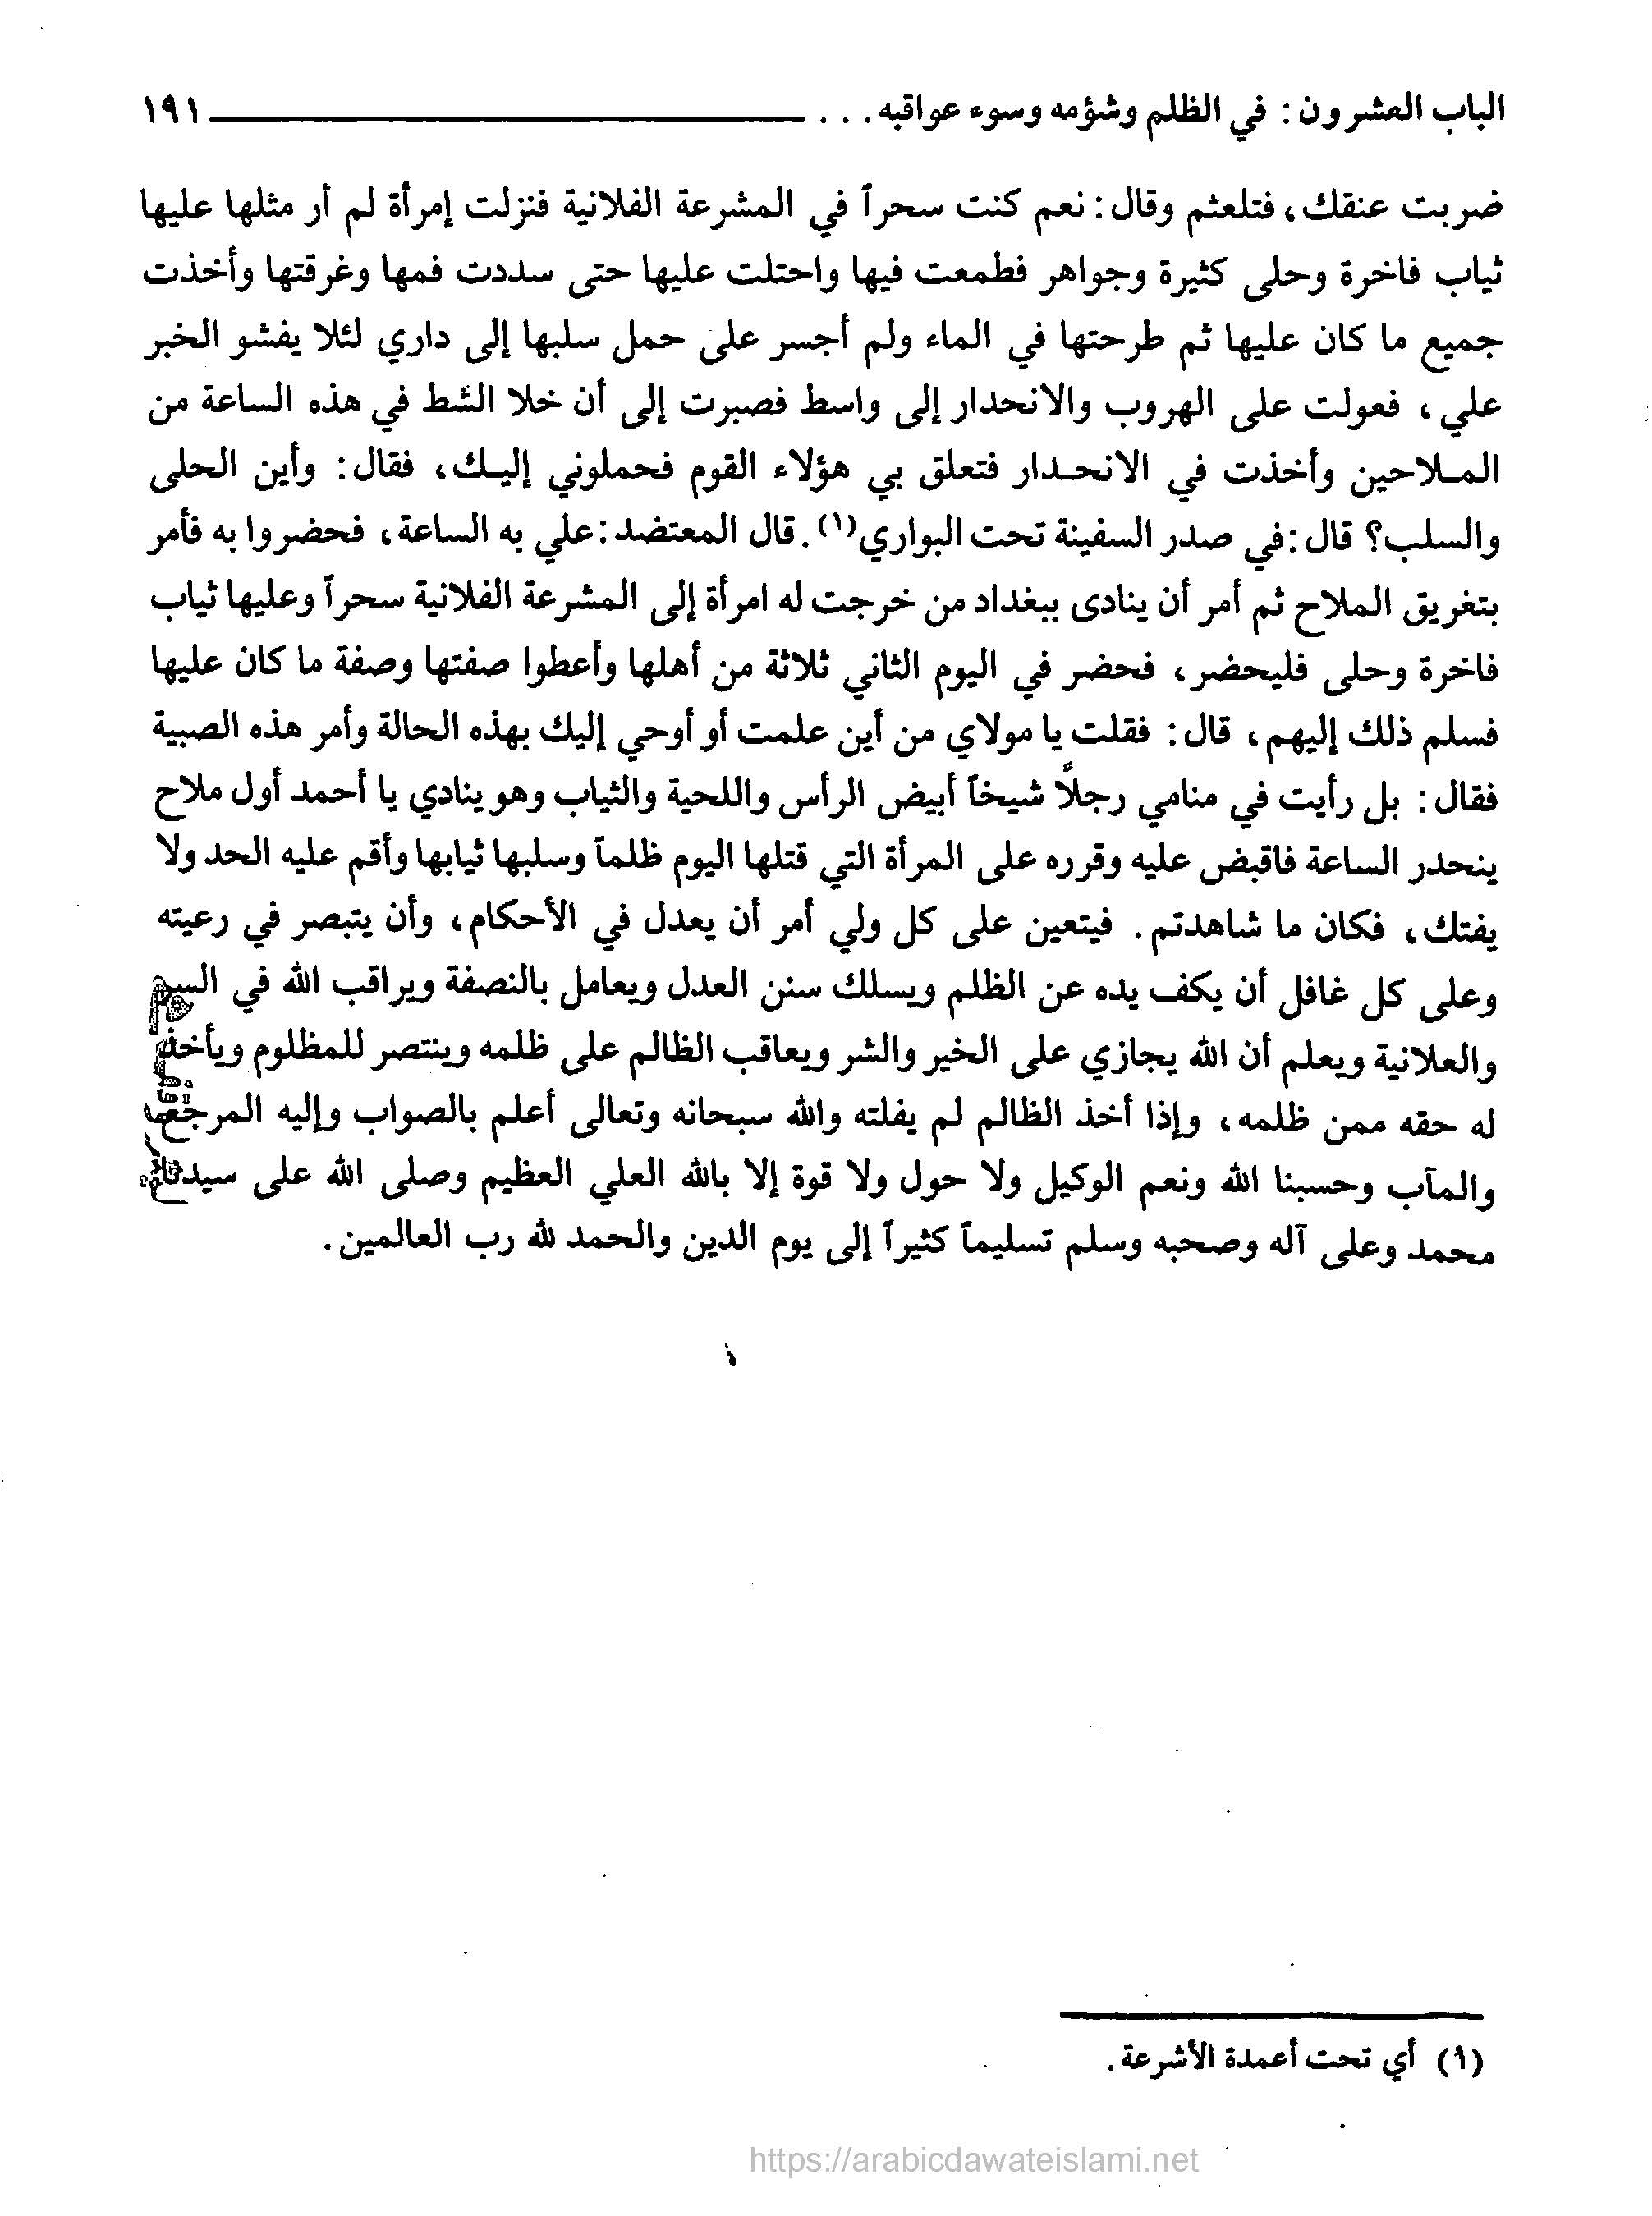 الباب العشرون: في الظلم وشؤمه وسوء عواقبه . . . ١٩١
ضربت عنقك، فتلعثم وقال: نعم كنت سحراً في المشرعة الفلانية فنزلت إمرأة لم أر مثلها عليها
ثياب فاخرة وحلى كثيرة وجواهر فطمعت فيها واحتلت عليها حتى سددت فمها وغرقتها وأخذت
جميع ما كان عليها ثم طرحتها في الماء ولم أجسر على حمل سلبها إلى داري لئلا يفشو الخبر
علي، فعولت على الهروب والانحدار إلى واسط فصبرت إلى أن خلا الشط في هذه الساعة من
الملاحين وأخذت في الانحدار فتعلق بي هؤلاء القوم فحملوني إليك، فقال: وأين الحلى
والسلب؟ قال: في صدر السفينة تحت البواري(١). قال المعتضد: علي به الساعة، فحضروا به فأمر
بتغريق الملاح ثم أمر أن ينادى ببغداد من خرجت له امرأة إلى المشرعة الفلانية سحراً وعليها ثياب
فاخرة وحلى فليحضر، فحضر في اليوم الثاني ثلاثة من أهلها وأعطوا صفتها وصفة ما كان عليها
فسلم ذلك إليهم، قال: فقلت يا مولاي من أين علمت أو أوحي إليك بهذه الحالة وأمر هذه الصبية
فقال: بل رأيت في منامي رجلاً شيخاً أبيض الرأس واللحية والثياب وهو ينادي يا أحمد أول ملاح
ينحدر الساعة فاقبض عليه وقرره على المرأة التي قتلها اليوم ظلماً وسلبها ثيابها وأقم عليه الحد ولا
يفتك، فكان ما شاهدتم. فيتعين على كل ولي أمر أن يعدل في الأحكام، وأن يتبصر في رعيته
وعلى كل غافل أن يكف يده عن الظلم ويسلك سنن العدل ويعامل بالنصفة ويراقب الله في السر
والعلانية ويعلم أن الله يجازي على الخير والشر ويعاقب الظالم على ظلمه وينتصر للمظلوم ويأخذ
له حقه ممن ظلمه، وإذا أخذ الظالم لم يفلته والله سبحانه وتعالى أعلم بالصواب وإليه المرجع
والمآب وحسبنا الله ونعم الوكيل ولا حول ولا قوة إلا بالله العلي العظيم وصلى الله على سيدنا
محمد وعلى آله وصحبه وسلم تسليماً كثيراً إلى يوم الدين والحمد لله رب العالمين.
(١) أي تحت أعمدة الأشرعة.
https://arabicdawateislami.net